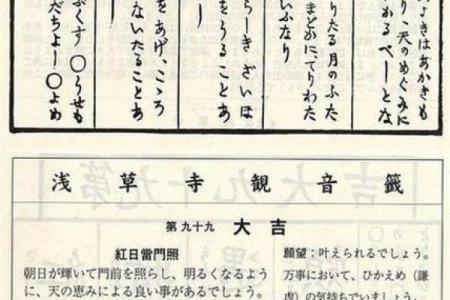 きはあかきも
り、天のめぐみに
かるべしとな
りたる月のふた
いふなり
らしき さいほ
をうることあ
をあげ、こゝろ
ないたることあ
ぶくす ○うせも
だちよし○よめ
浅草寺観音籤
第九十九 大吉
紅日當門照
朝日が輝いて門前を照らし、明るくなるよう
に、天の恵みによる良い事があるでしょう。
願望:叶えられるでしょう。
万事において、ひかえめ（謙
虚）の気持ちでいましょう。